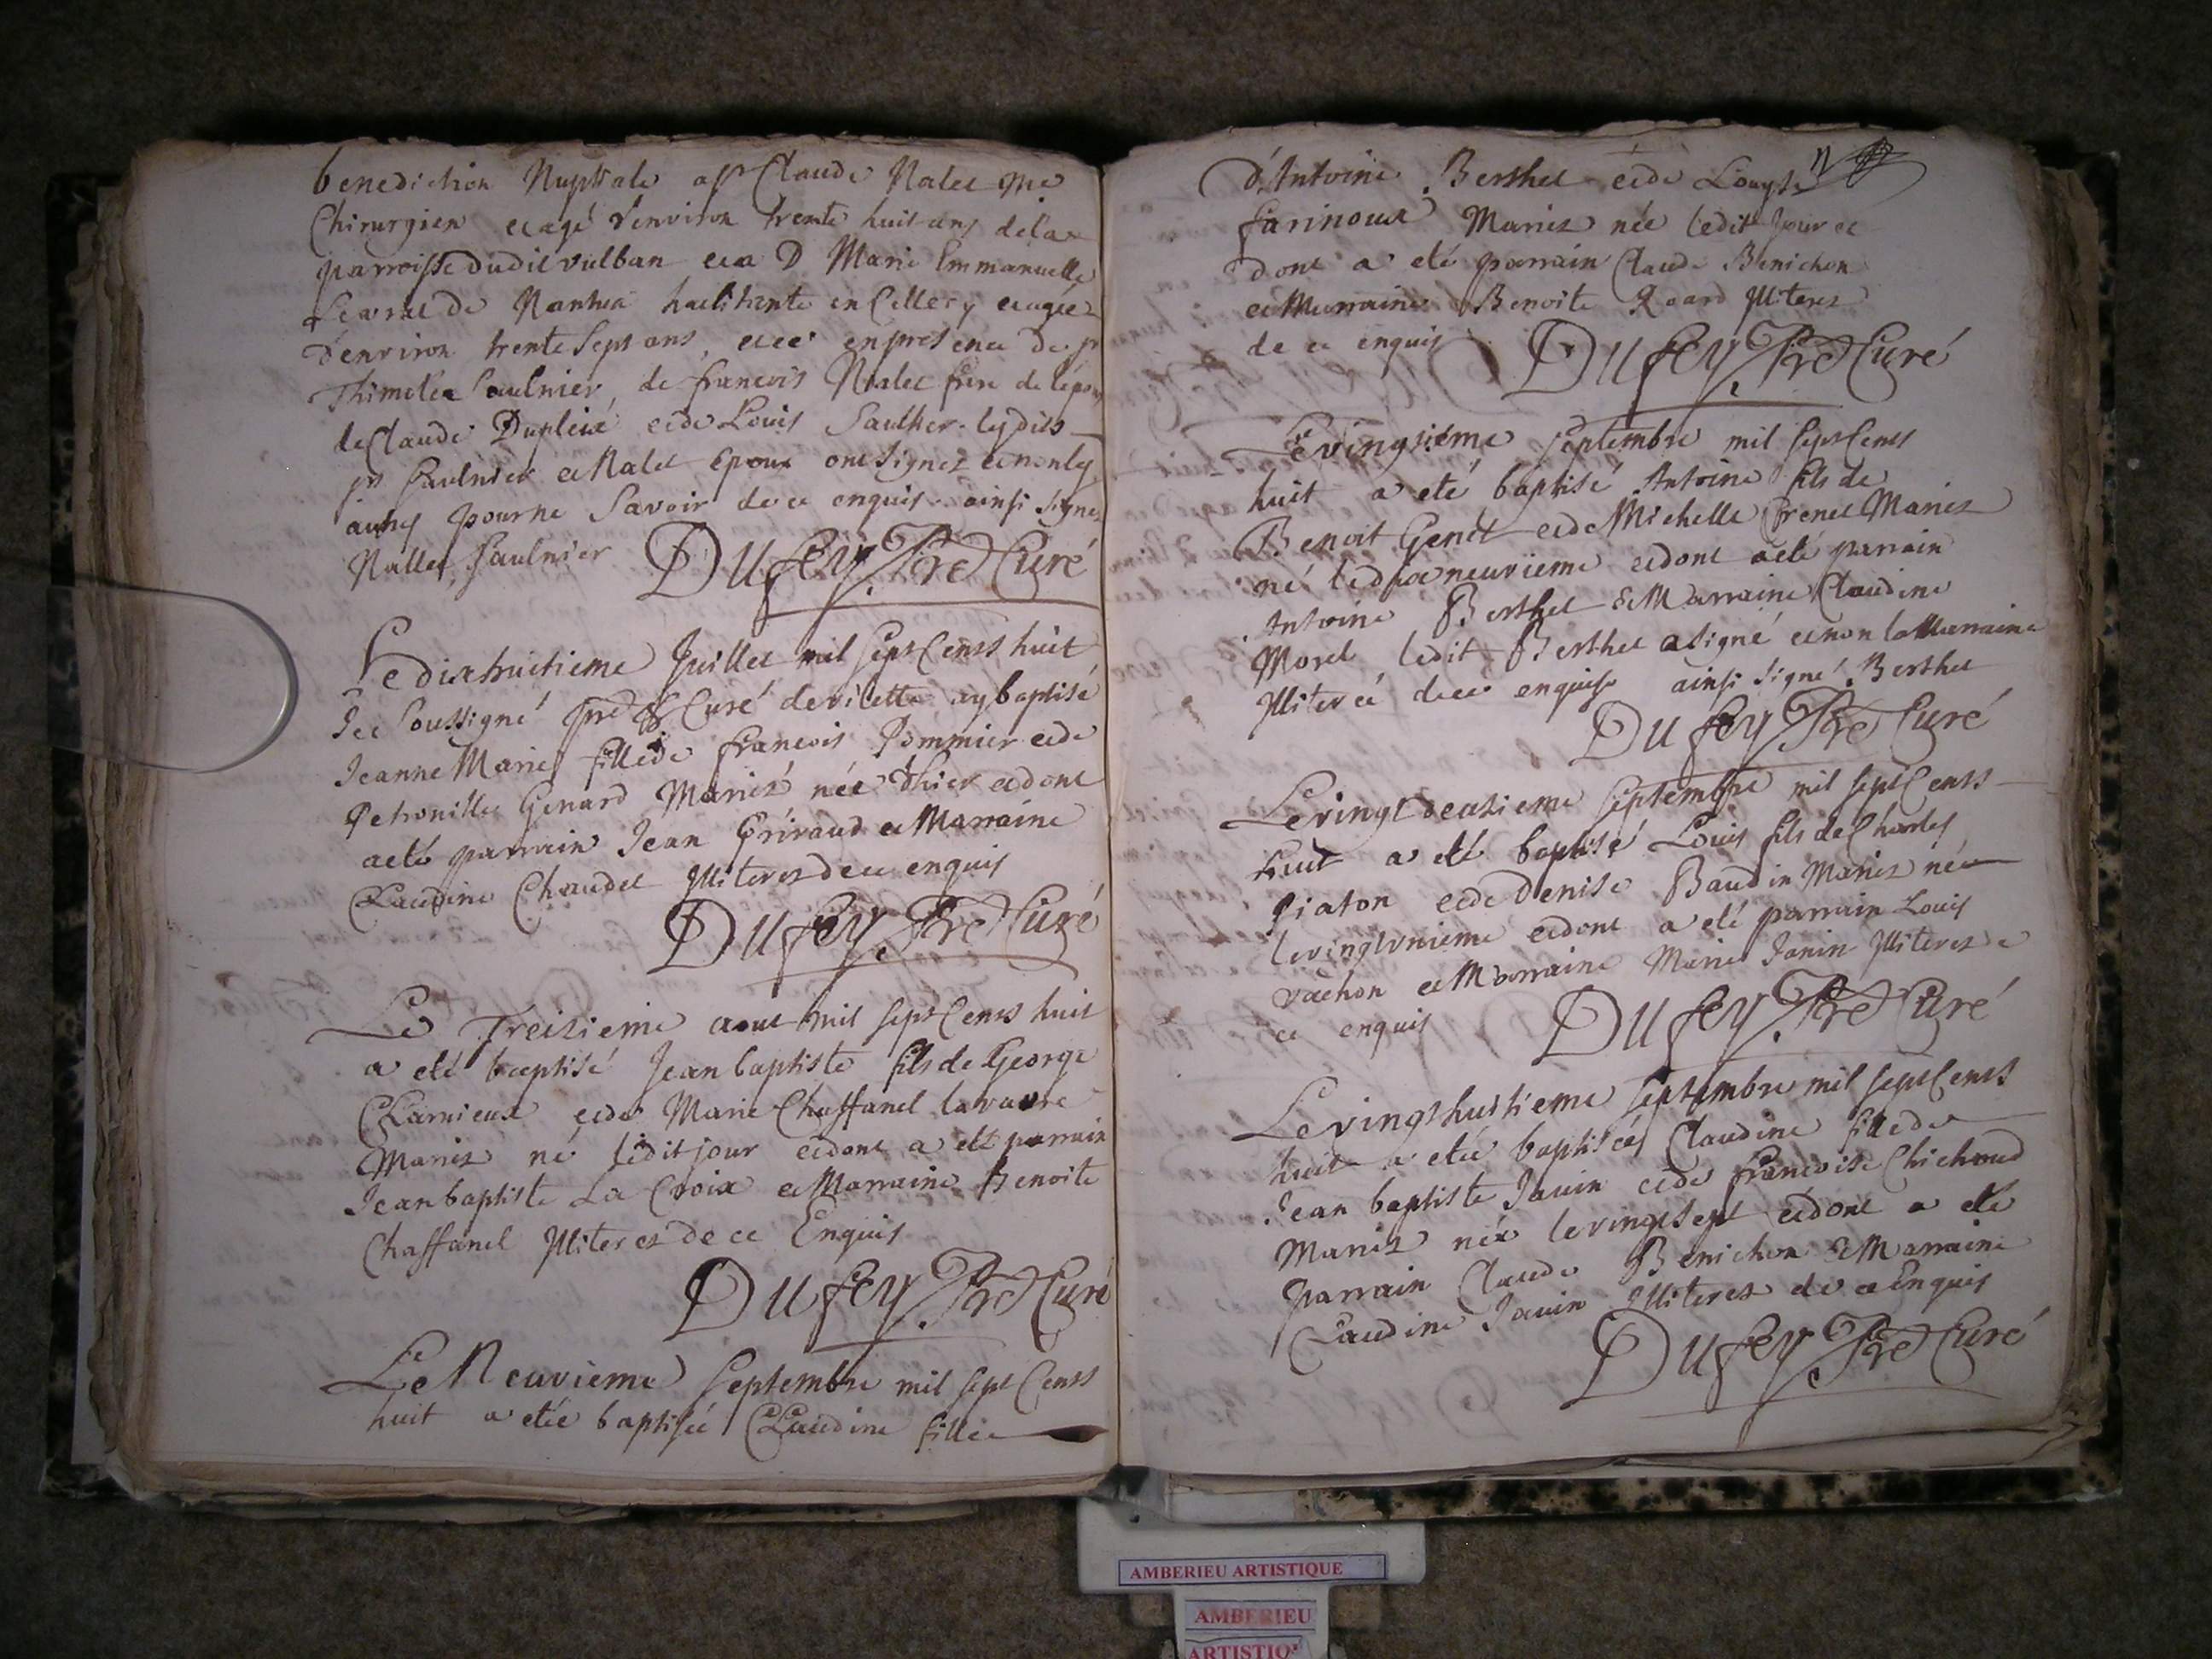 benediction Nuptiale a sr Claude Nalet me
Chirurgien et agé d'environ trente huit ans de la
parroisse dudit vulban et a D Marie Emmanuelle
de Nantua habitante en Cellery et agée
d'environ trente Sept ans, et ce en presence de sr
Thimelea Saulnier, de francois Nalet frere de l'epoux
de Claude Dupleix et de Louis Saulker lesdits
srs Saulnier et Nalet Epoux ont Signez et non les
autres pour ne Savoir de ce enquis ainsi Signez
Nallet, Saulnier Dufey Pre Curé
Le dix huitieme Juillet mil Sept Cents huit
Je Soussigné pre & Curé de vilette ay baptisé
Jeanne Marie fille de francois Pommier et de
Petronille Genard Mariez née d'hier et dont
a eté parrain Jean Griraud et Marraine
Claudine Chaudet Illiterez de ce enquis
Dufey Pre Curé
Le Treizieme aout mil Sept Cents huit
a eté baptisé Jean baptiste fils de George
Clamieux et de Marie Chaffanel la vavre
Mariez né ledit jour et dont a eté parrain
Jean baptiste La Croix et Marraine Benoite
Chaffanel Illiterez de ce Enquis
Dufey Pre Curé
Le Neuvieme Septembre mil Sept Cents
huit a etée baptisée Claudine fille
d'Antoine Berthet et de Louyse
farinoux Mariez née ledit Jour et
dont a eté parrain Claude Benichon
et Marraine Benoite Roard Illiterez
de ce enquis Dufey Pre Curé
Le vingtiéme Septembre mil Sept Cents
huit a eté baptisé Antoine fils de
Benoit Genet et de Michelle frenet Mariez
né le dix neuvieme et dont a eté parrain
Antoine Berthet & Marraine Claudine
Morel ledit Berthet a Signé et non la Marraine
Illiterée de ce enquise ainsi Signé Berthet
Dufey Pre Curé
Le vingt deuxieme Septembre mil Sept Cents
huit a eté baptisé Louis fils de Charles
Piaton et de Denise Baudin Mariez né
le vingt vnieme et dont a eté parrain Louis
vachon et Marraine Marie Janin Illiterez de
ce enquis Dufey Pre Curé
Le vingt huitieme Septembre mil Sept Cents
huit a etée baptisée Claudine fille de
Jean baptiste Janin et de francoise Chichoud
Mariez née le vingt Sept et dont a eté
parrain Claude Benichon & Marraine
Claudine Janin Illiterez de ce Enquis
Dufey Pre Curé
AMBERIEU ARTISTIQUE
AMBERIEU
ARTISTIQ